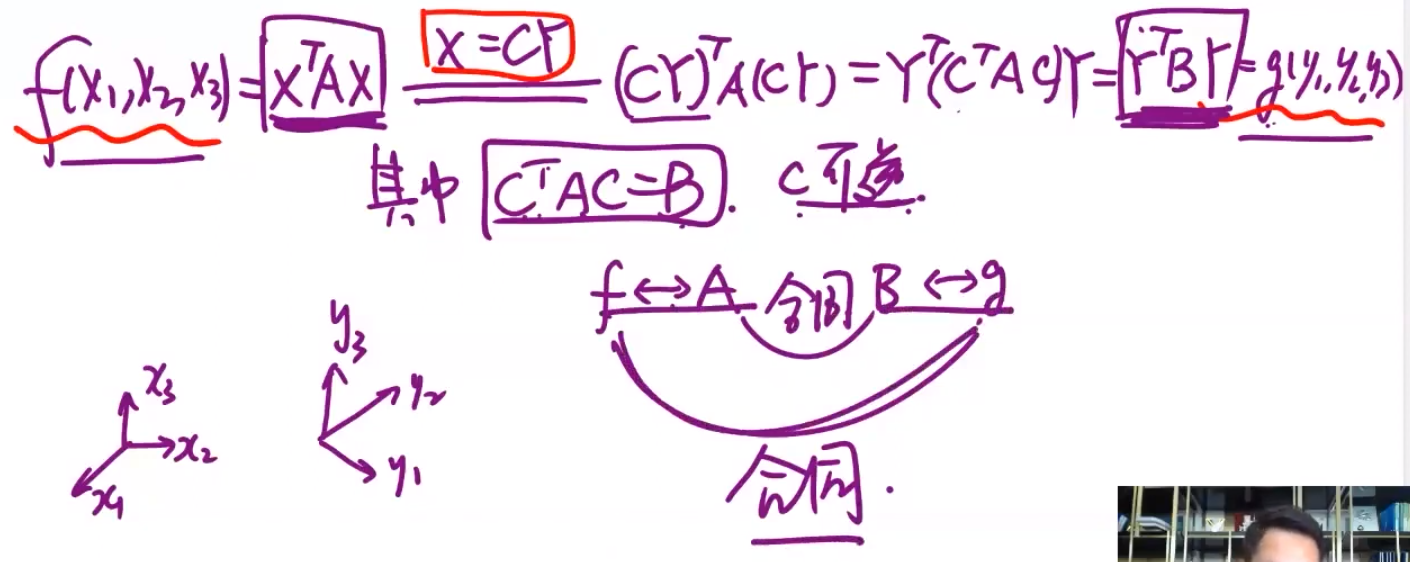 f(x₁,x₂,x₃)=XᵀAX X=CY (CY)ᵀA(CY)=Yᵀ(CᵀAC)Y=YᵀBY=g(y₁,y₂,y₃)
其中 CᵀAC=B. C可逆.
f↔A 合同 B↔g
x₃ x₂ x₁
y₃ y₂ y₁
合同.